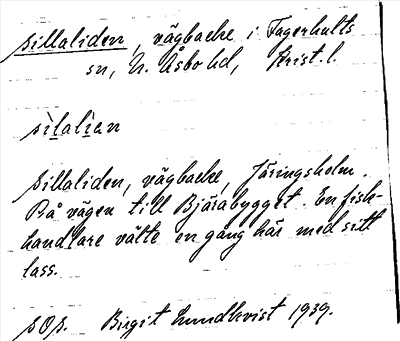 Sillaliden, vägbacke i Fagerhults
sn, N. Åsbo hd, Krist. l.
silalian
Sillaliden, vägbacke, Järingsholm.
På vägen till Bjärabygget. En fisk-
handlare välte en gång här med sitt
lass.
SOS. Birgit Lundkvist 1939.